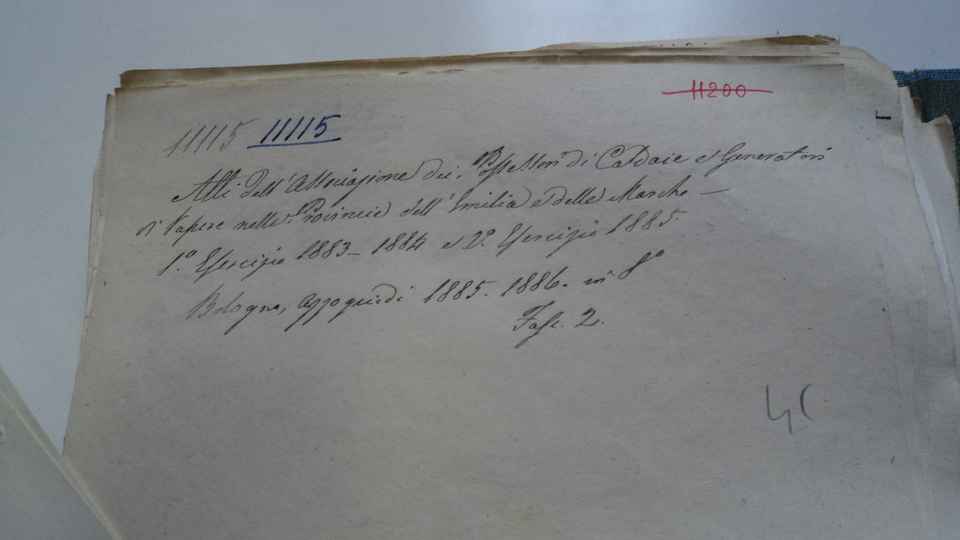 11200
11115 11115
Atti dell'Associazione dei Possessori di Caldaie e Generatori
di Vapore nelle Provincie dell'Emilia e delle Marche —
1º. Esercizio 1883 - 1884 e 2º. Esercizio 1885
Bologna, Azzoguidi 1885. 1886. in 8º
Fasc. 2.